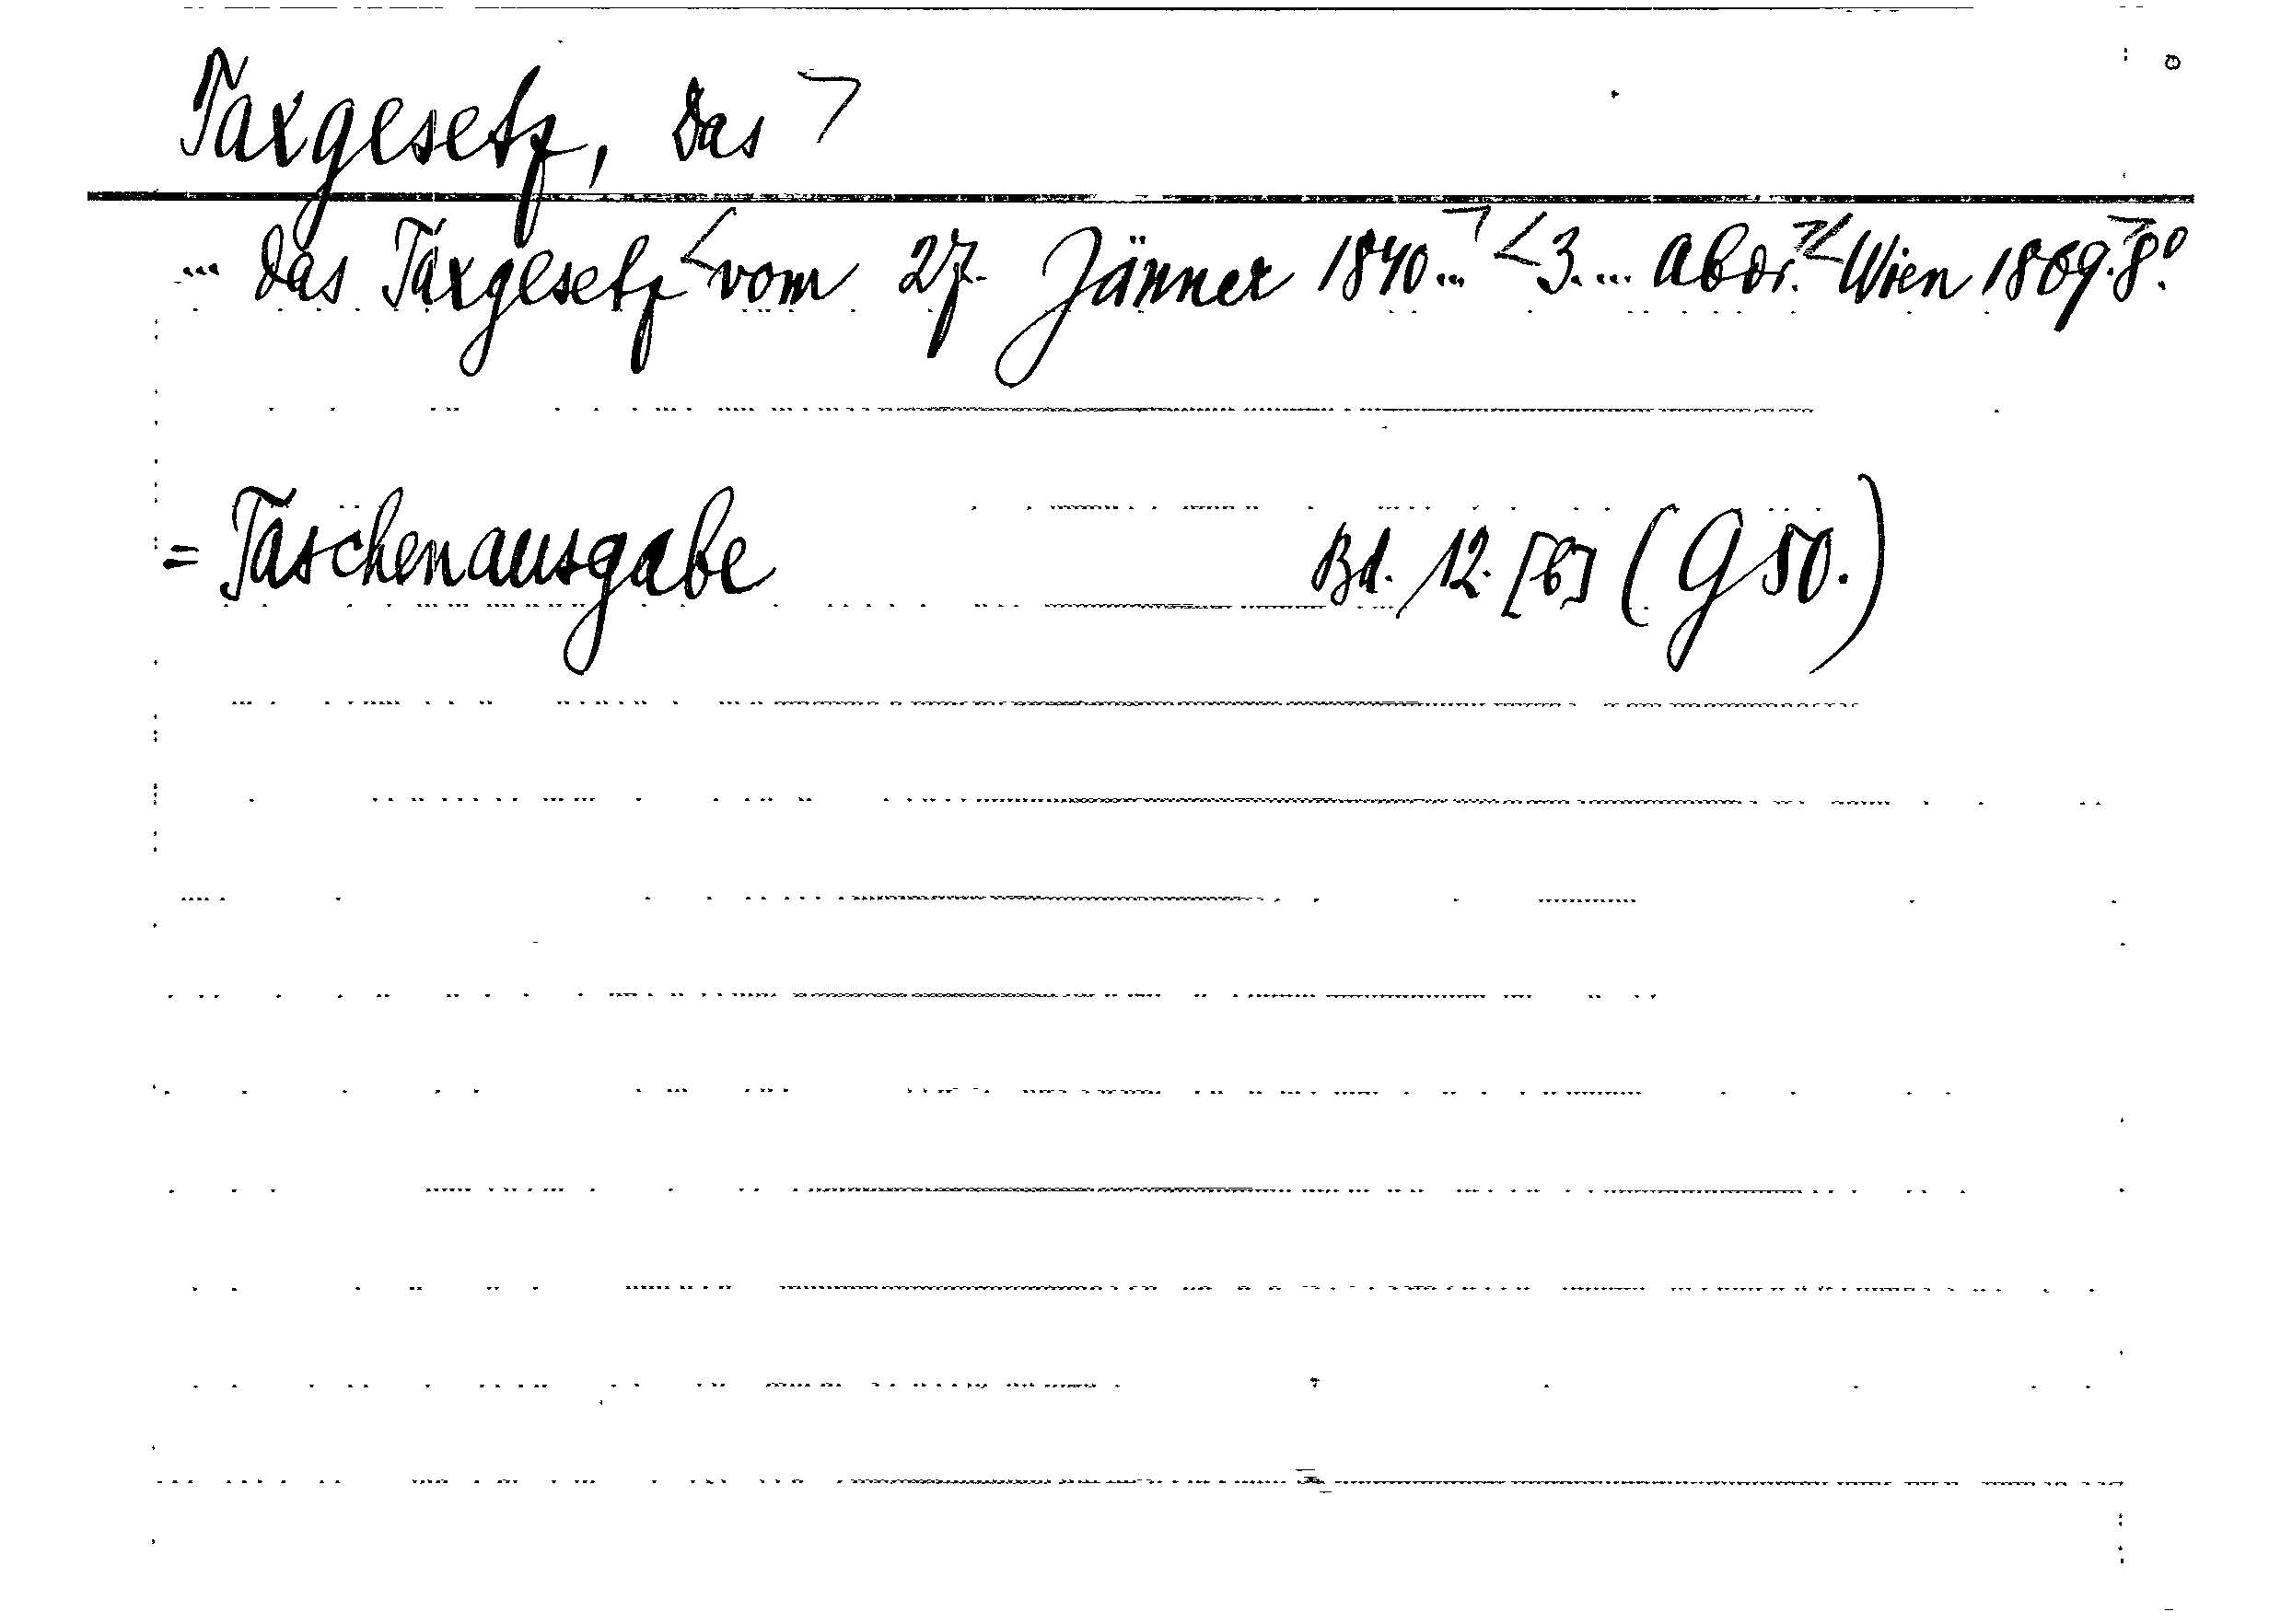 Taxgesetz, das
... das Taxgesetz vom 27. Jänner 1840... 3.... Abdr. Wien 1869. 8°.
= Taschenausgabe Bd. 12. [6] (G 50.)